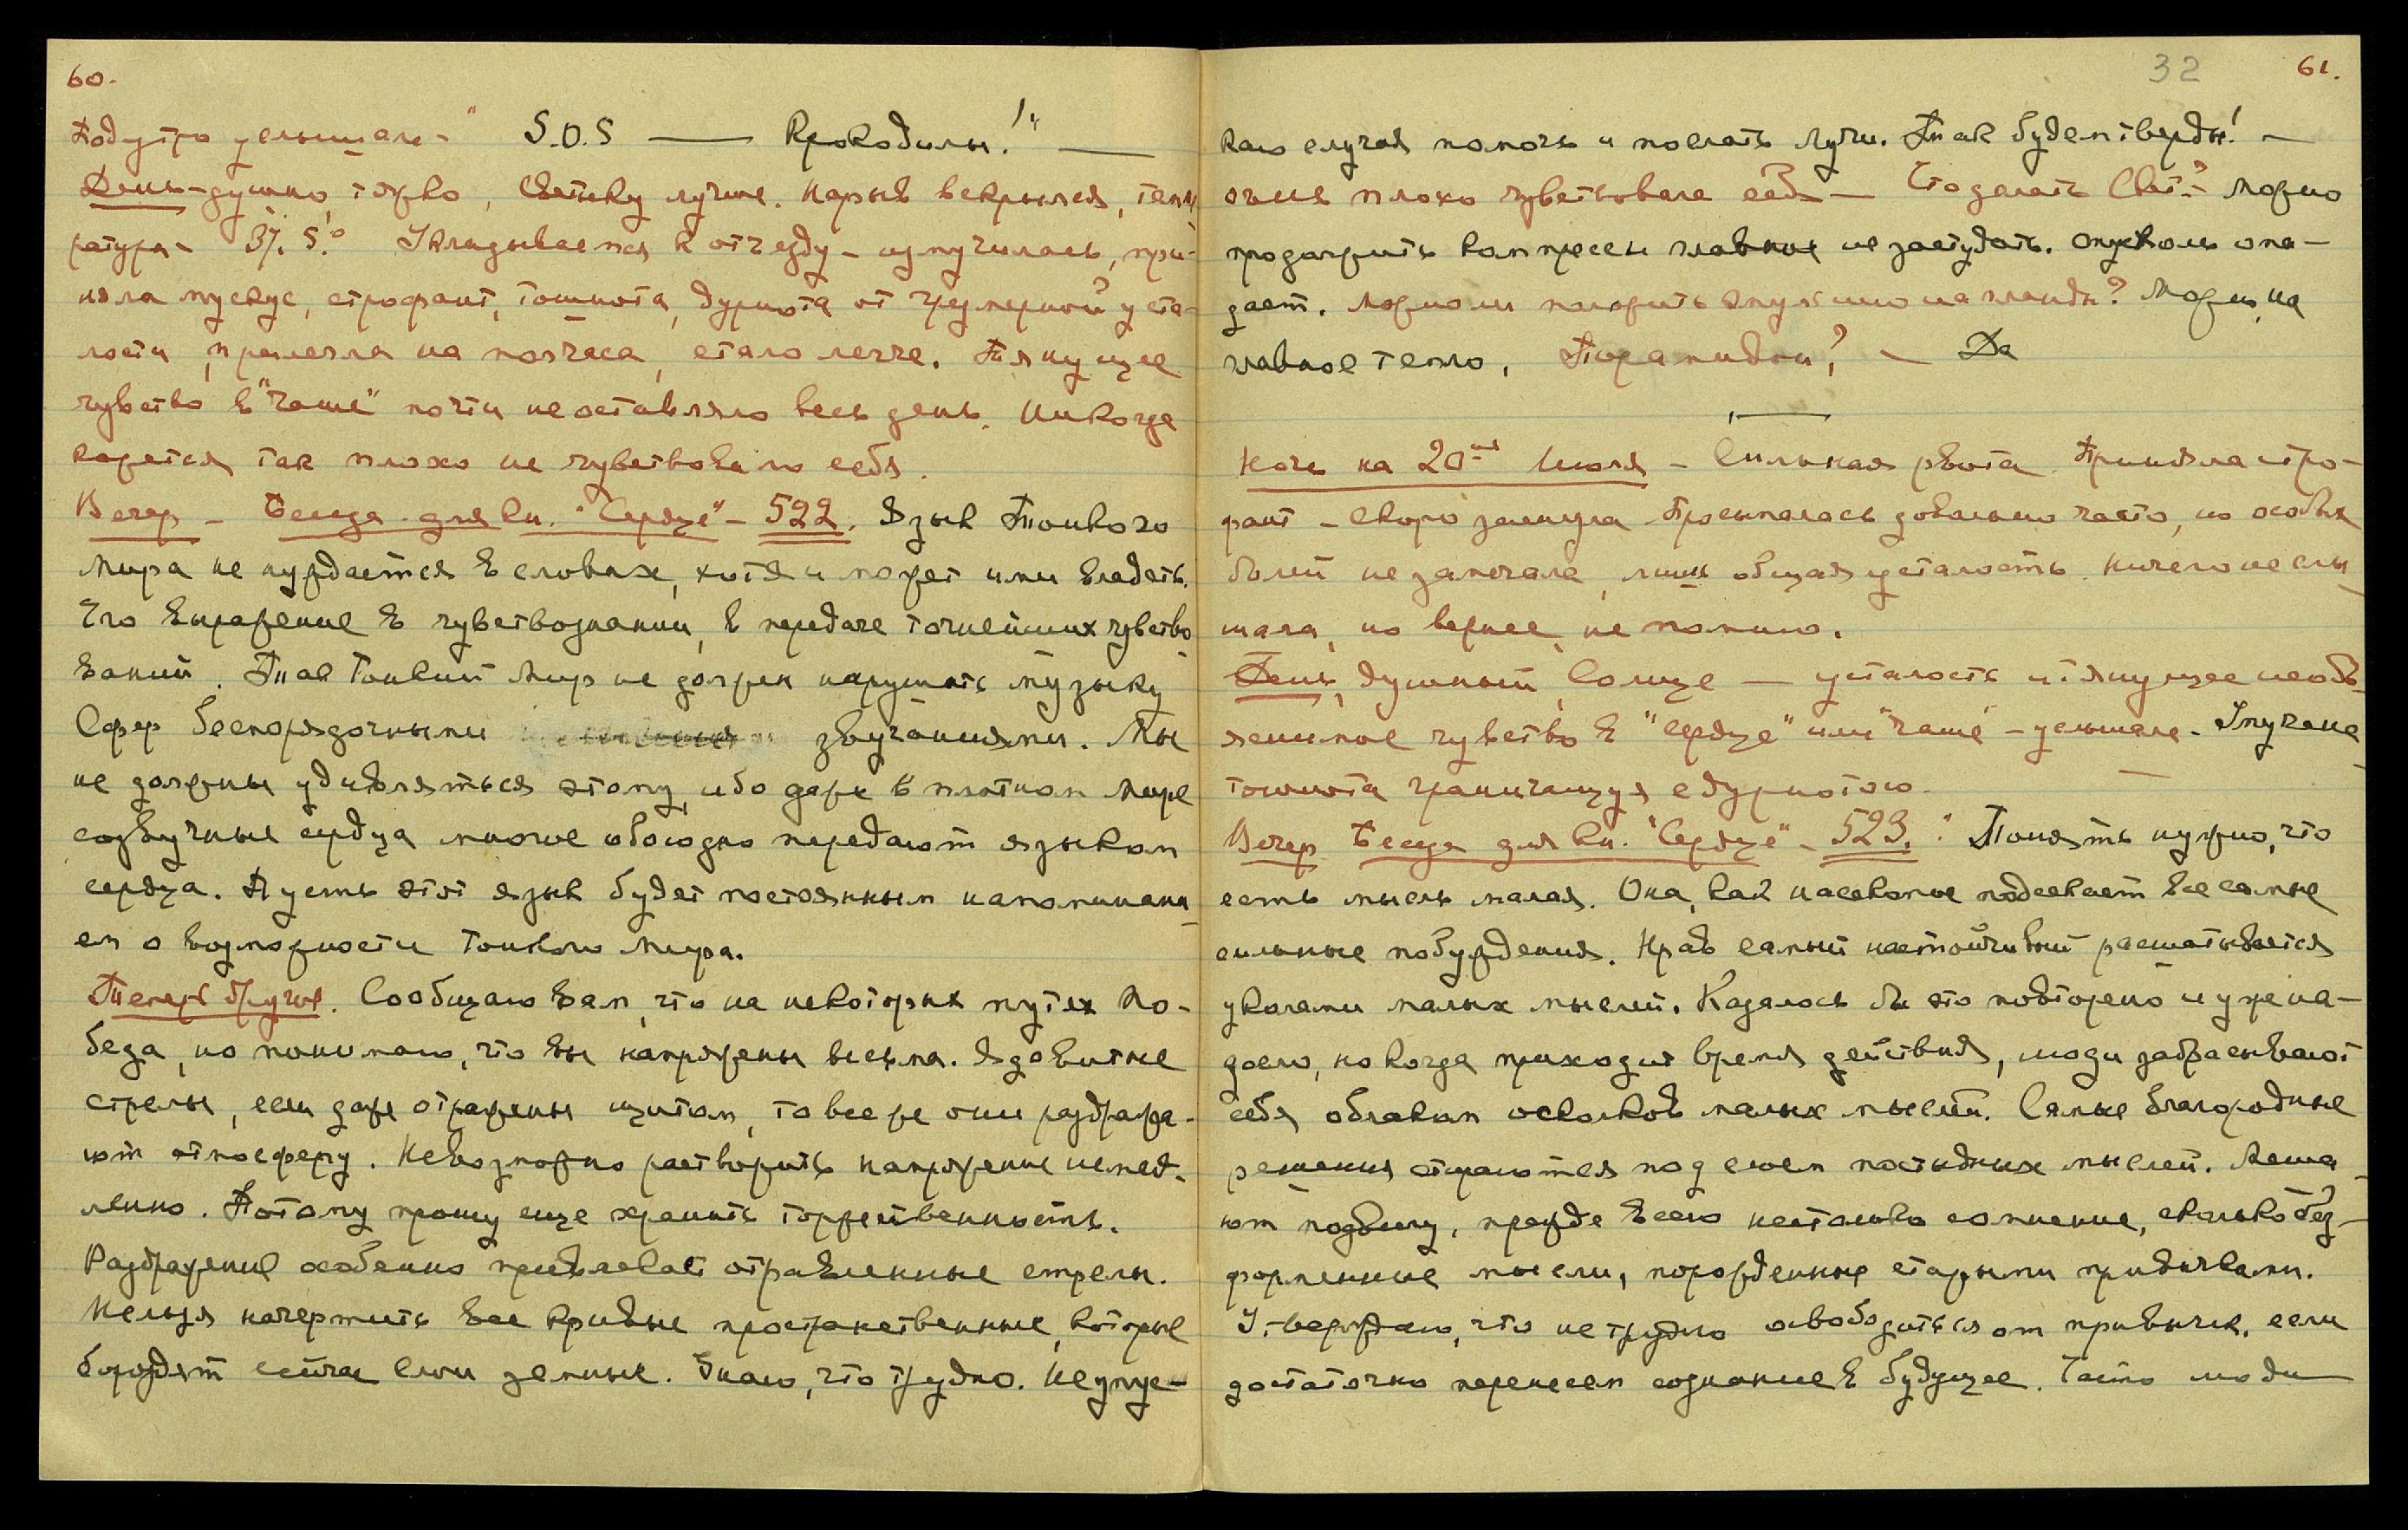 60.
Подутро услышала – " S.O.S — Крокодилы!" —
День – душно, тяжко, Светику лучше. Нарыв вскрылся, темп
ратура – 37.5°. Укладывается к отъезду – измучилась, при-
няла мускус, строфант, тошнота, дурнота от чрезмерной уста-
лости, прилегла на полчаса, стало легче. Тянущее
чувство в "чаше" почти не оставляло весь день. Никогда
кажется так плохо не чувствовала себя.
Вечер – Беседа для кн. "Сердце" – 522. Язык Тонкого
Мира не нуждается в словах, хотя и может ими владеть.
Его выражение в чувствознании, в передаче тончайших чувство
ваний. Так Тонкий Мир не должен нарушать музыку
Сфер беспорядочными звучаниями. Мы
не должны удивляться этому, ибо даже в плотном Мире
созвучные сердца многое обоюдно передают языком
сердца. Пусть этот язык будет постоянным напоминани
ем о возможности Тонкого Мира.
Теперь другое. Сообщаю вам, что на некоторых путях По-
беда, но понимаю, что вы напряжены весьма. Ядовитые
стрелы, если даже отражены щитом, то все же они раздража-
ют атмосферу. Невозможно растворить напряжение немед-
ленно. Потому прошу еще хранить торжественность.
Раздражение особенно привлекает отравленные стрелы.
Нельзя начертить все кривые пространственные, которые
бороздят сейчас слои земные. Знаю, что трудно. Не упус-
32 61.
каю случая помочь и послать Лучи. Так будем тверды! –
очень плохо чувствовала себя – Что делать Свет.? Можно
продолжить компрессы главное не застудить. опухоль опа-
дает. Можно ли положить опухшие на гланды? Можно, на
главное тепло, Пирамидон? – Да
Ночь на 20ое Июля – Сильная рвота. Приняла стро-
фант – скоро заснула. Просыпалась довольно часто, но особых
болей не замечала, лишь общая усталость. Ничего не слы
шала, но вернее, не помню.
День, душный, Солнце — усталость и тянущее необъ-
яснимое чувство в "сердце" или "чаше" – услышала – Змучена
тошнота граничащая с дурнотою.
Вечер Беседа для кн. "Сердце" – 523. " Понять нужно, что
есть мысль малая. Она, как насекомое подсекает все самые
сильные побуждения. Нрав самый настойчивый расшатывается
уколами малых мыслей. Казалось бы это повторено и уже на-
доело, но когда приходит время действия, люди забрасывают
себя облаком осколков малых мыслей. Самые благородные
решения стираются под слоем постыдных мыслей. Меша
ют подвигу, прежде всего не столько сомнение, сколько без-
форменные мысли, порожденные старыми привычками.
Утверждаю, что не трудно освободиться от привычек, если
достаточно перенесем сознание в будущее. Часто люди